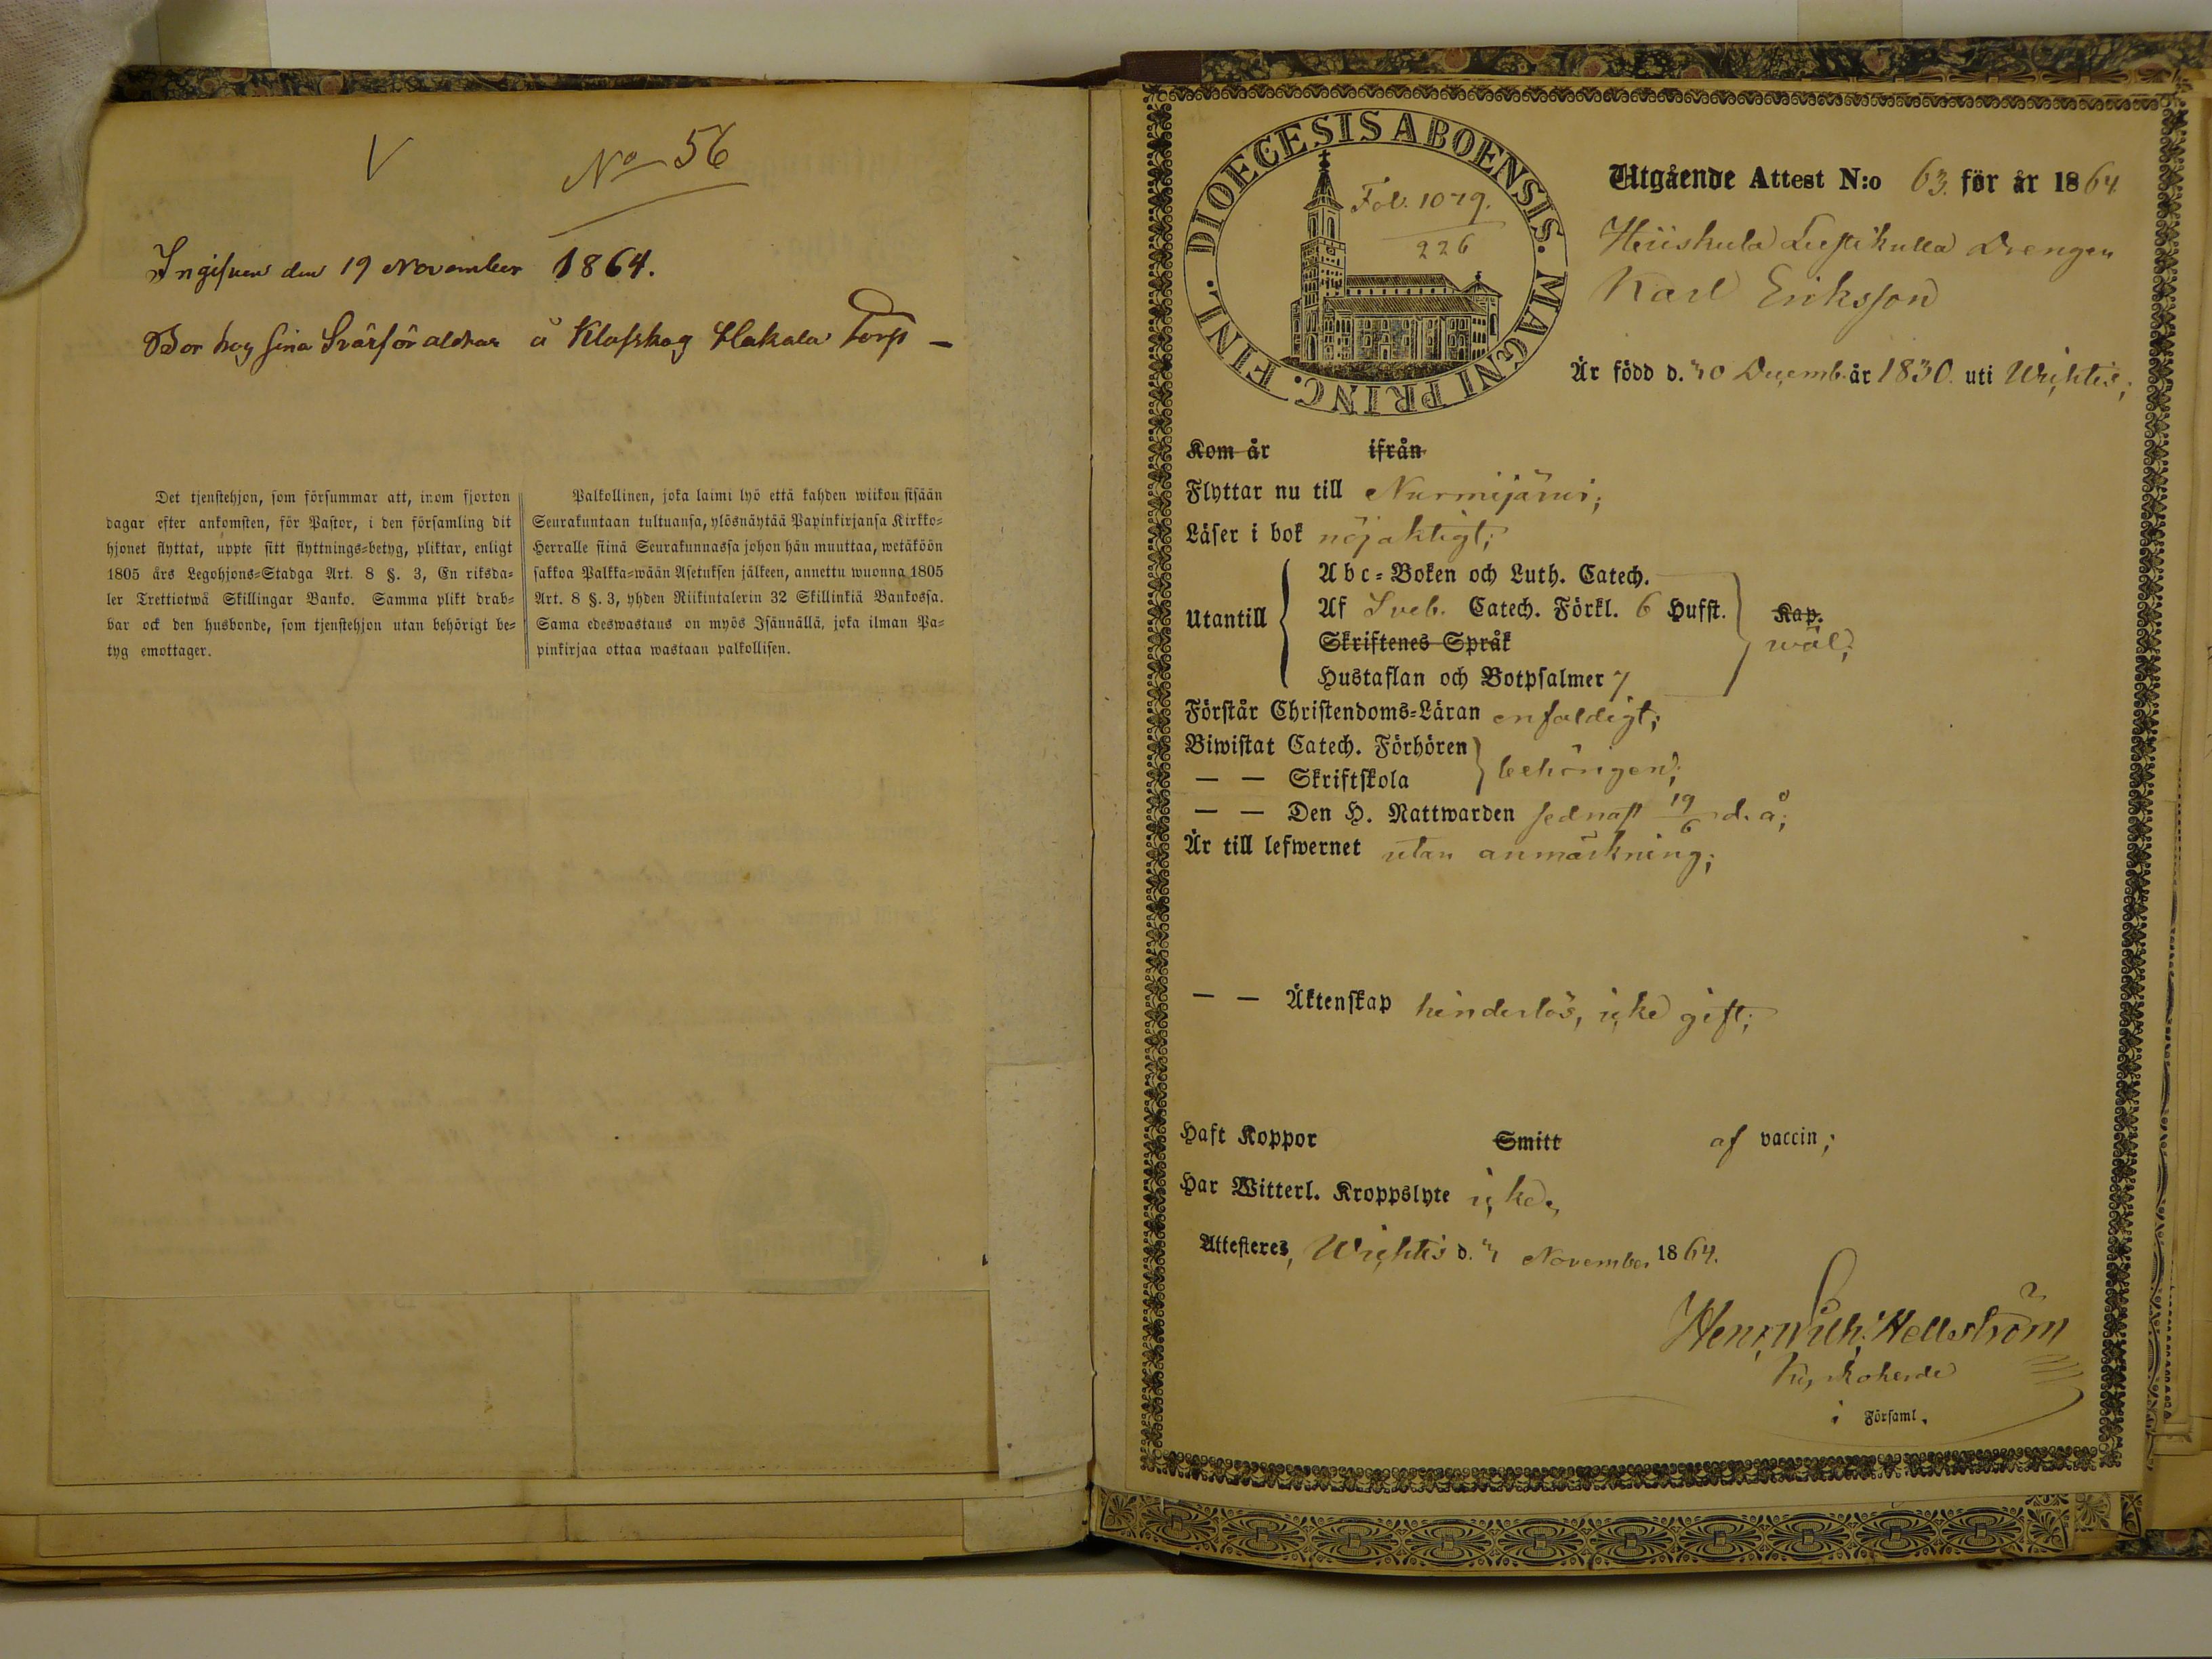 V
No 56
Ingifven den 19 November 1864.
Bor hos sina Svärföräldrar å Klafskog Hakala Torp –
Det tjenstehjon, som försummar att, inom fjorton
dagar efter ankomsten, för Pastor, i den församling dit
hjonet flyttat, uppte sitt flyttnings=betyg, pliktar, enligt
1805 års Legohjons=Stadga Art. 8 §. 3, En riksda=
ler Trettiotwå Skillingar Banko. Samma plikt drab=
bar ock den husbonde, som tjenstehjon utan behörigt be=
tyg emottager.
Palkollinen, joka laimi lyö että kahden wiikon sisään
Seurakuntaan tultuansa, ylösnäytää Papinkirjansa Kirkko=
Herralle siinä Seurakunnassa johon hän muuttaa, wetäköön
sakkoa Palkka=wään Asetuksen jälkeen, annettu wuonna 1805
Art. 8 §. 3, yhden Riikintalerin 32 Skillinkiä Bankossa.
Sama edeswastaus on myös Isännällä, joka ilman Pa=
pinkirjaa ottaa wastaan palkollisen.
DIOECESIS ABOENSIS. MAGNI PRINC. FINL.
Fol. 1079.
226
Utgående Attest N:o 63. för år 1864
Hiiskula Lustikulla Drengen
Karl Eriksson
Är född d. 30 Decemb. år 1830. uti Wichtis;
Kom år ifrån
Flyttar nu till Nurmijärvi;
Läser i bok nöjaktigt;
Utantill
Abc=Boken och Luth. Catech.
Af Sveb. Catech. Förkl. 6 Hufst.
Skriftenes Språk
Hustaflan och Botpsalmer 7
Kap.
wäl;
Förstår Christendoms=Läran enfaldigt;
Biwistat Catech. Förhören
— — Skriftskola
behörigen;
— — Den H. Nattwarden sednast 19/6 d. å;
Är till lefwernet utan anmärkning;
— — Äktenskap hinderlös, icke gift;
Haft Koppor Smitt af vaccin;
Har Witterl. Kroppslyte icke,
Attesteres, Wichtis d. 4 November 1864.
Henr. Wilh. Hellström
Kyrkoherde
i Församl.